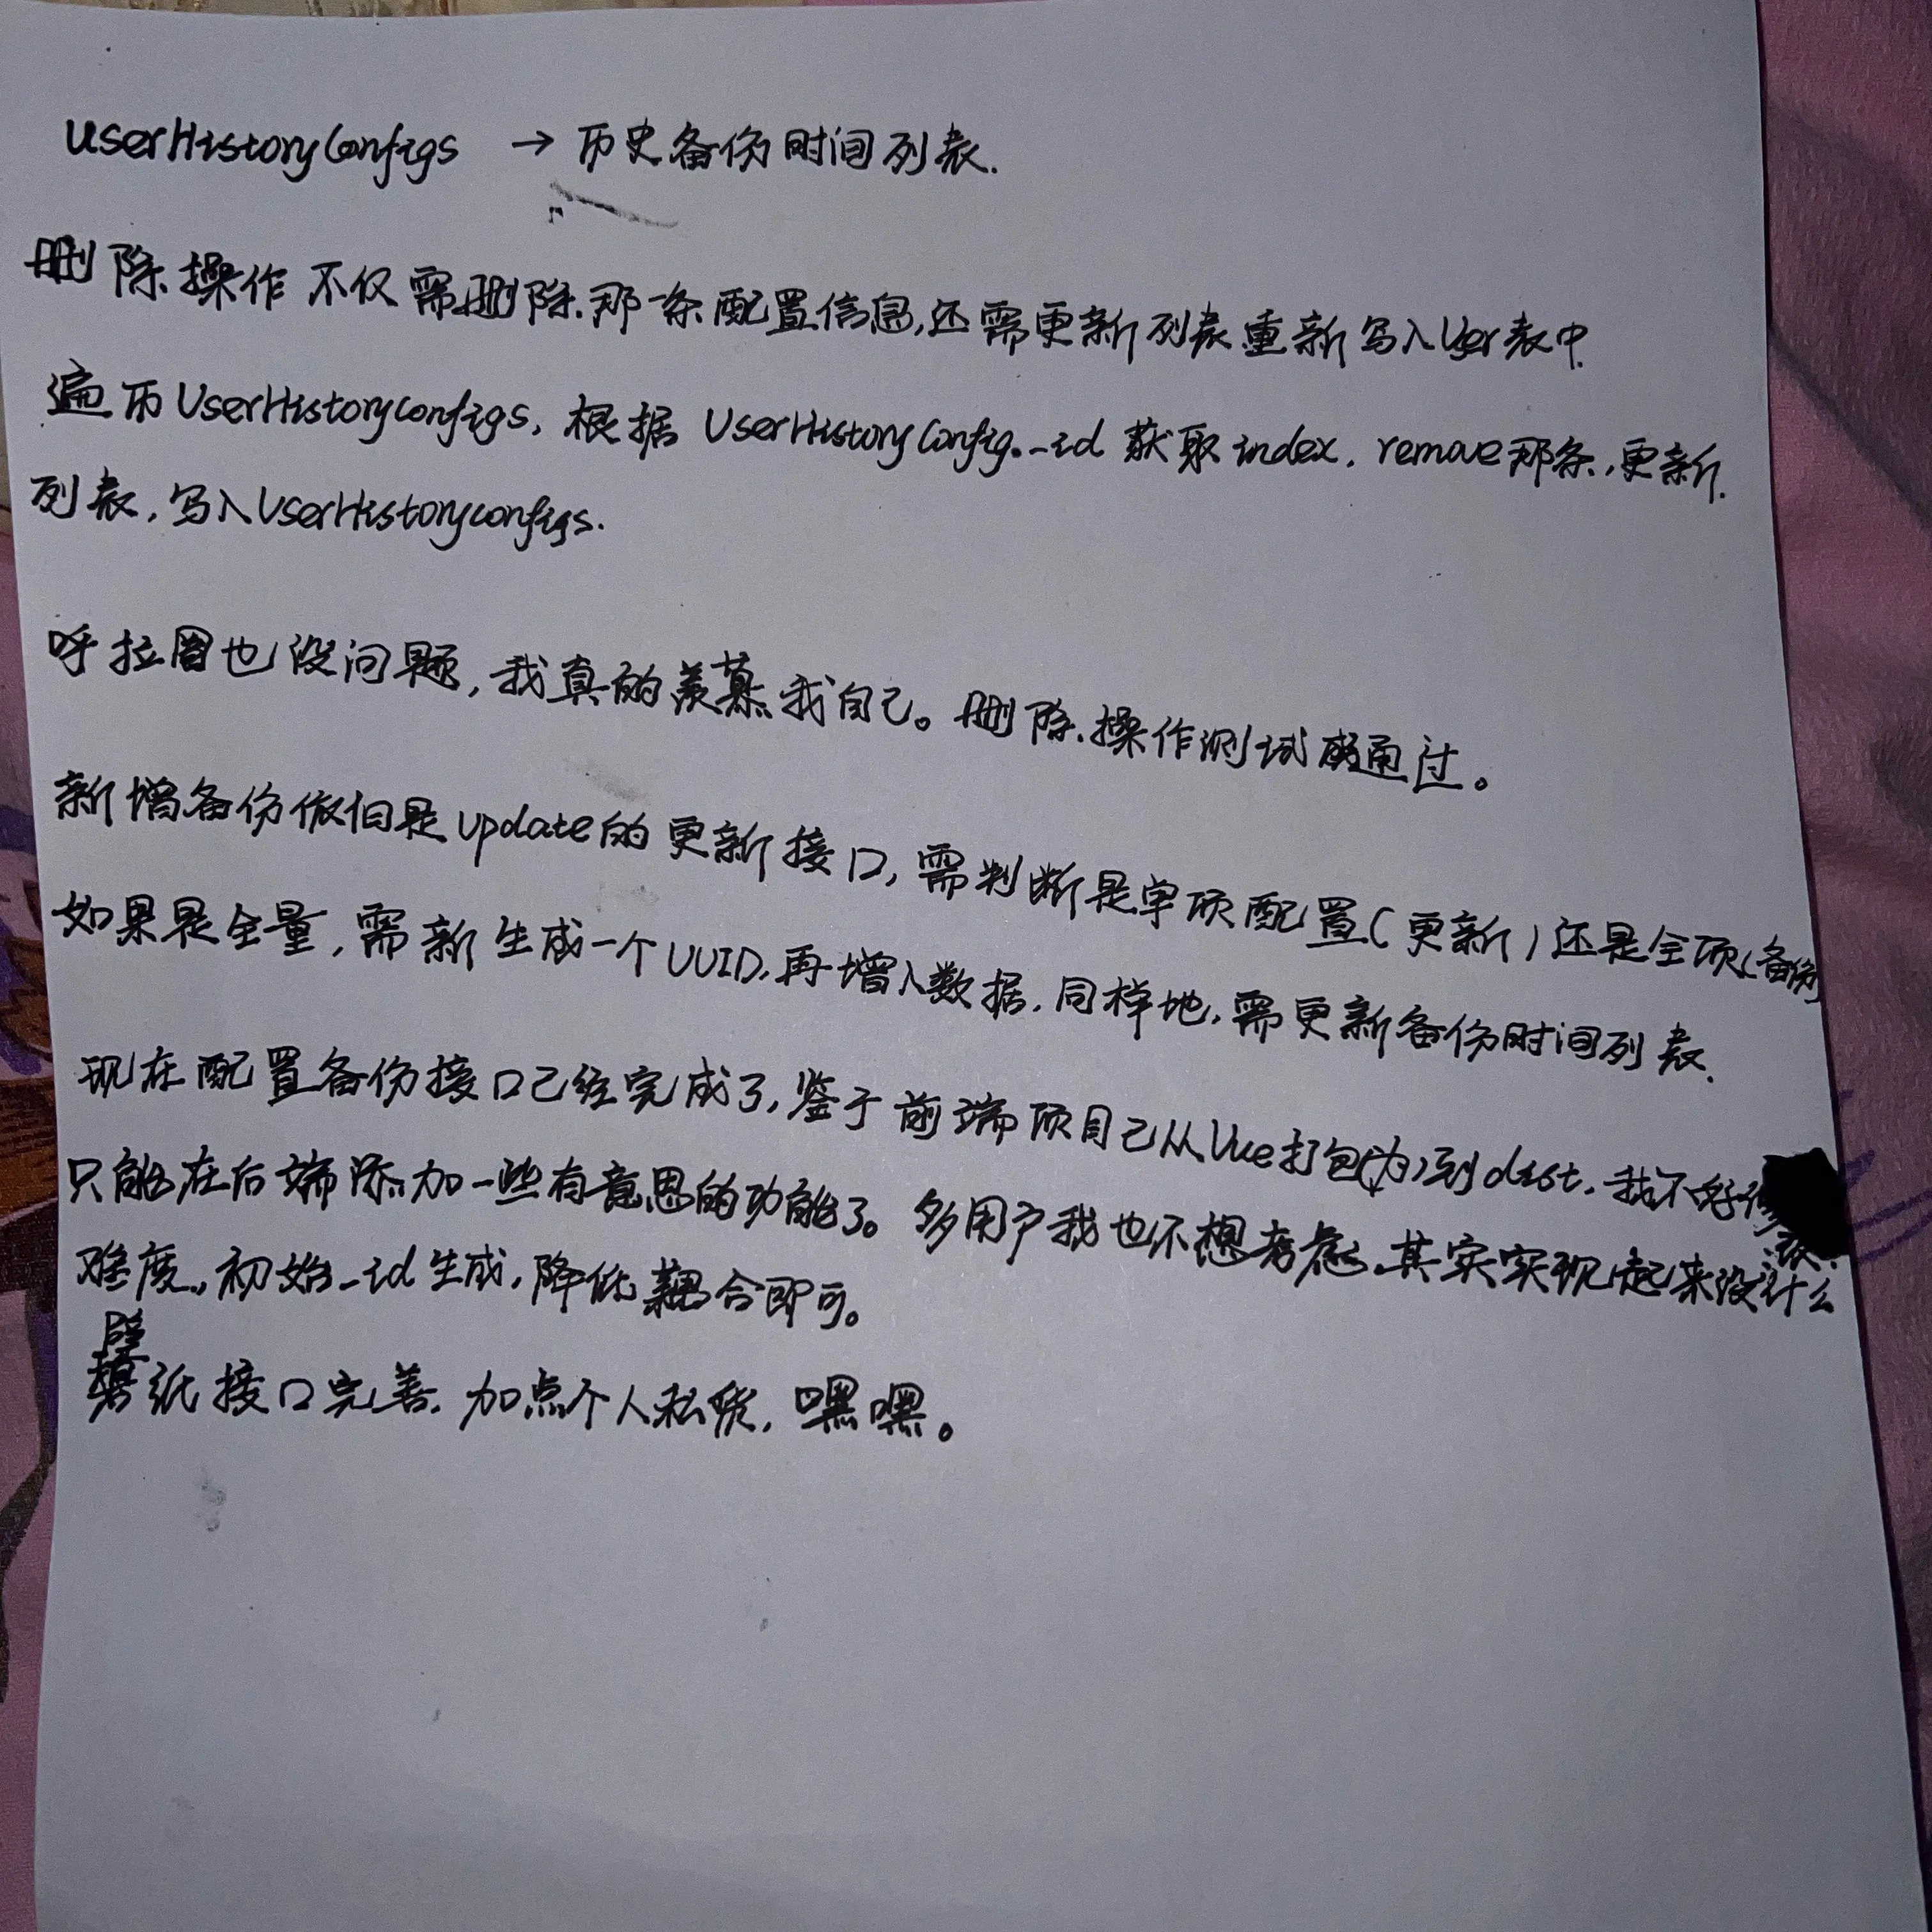 UserHistoryConfigs → 历史备份时间列表.
删除操作不仅需删除那一条配置信息,还需更新列表重新写入User表中.
遍历UserHistoryconfigs, 根据 UserHistoryConfig._id 获取index, remove那条,更新.
列表,写入UserHistoryconfigs.
呼拉圈也没问题,我真的羡慕我自己。删除操作测试通过。
新增备份依旧是update的更新接口,需判断是单项配置(更新)还是全项(备份)
如果是全量,需新生成一个UUID,再增入数据,同样地,需更新备份时间列表.
现在配置备份接口已经完成了,鉴于前端项目已从Vue打包(为)到dist,我不好修
只能在后端添加一些有意思的功能了。多用户我也不想考虑,其实实现起来没什么
难度,初始_id生成,降低耦合即可。
壁
纸接口完善,加点个人私货,嘿嘿。